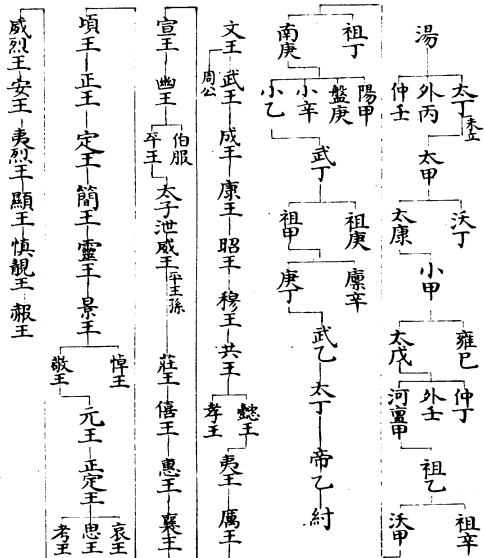 湯
太丁未立 外丙 仲壬
太甲
沃丁 太康
小甲
雍巳 太戊
仲丁 外壬 河亶甲
祖乙
祖辛 沃甲
祖丁 南庚
陽甲 盤庚 小辛 小乙
武丁
祖庚 祖甲
廩辛 庚丁
武乙 太丁 帝乙 紂
文王 武王 成王 康王 昭王 穆王 共王
周公
懿王 孝王
夷王 厲王
宣王 幽王
伯服 平王
太子泄 威王平王孫 莊王 僖王 惠王 襄王
頃王 正王 定王 簡王 靈王 景王
悼王 敬王
元王 正定王
哀王 思王 考王
威烈王 安王 夷烈王 顯王 慎靚王 赧王